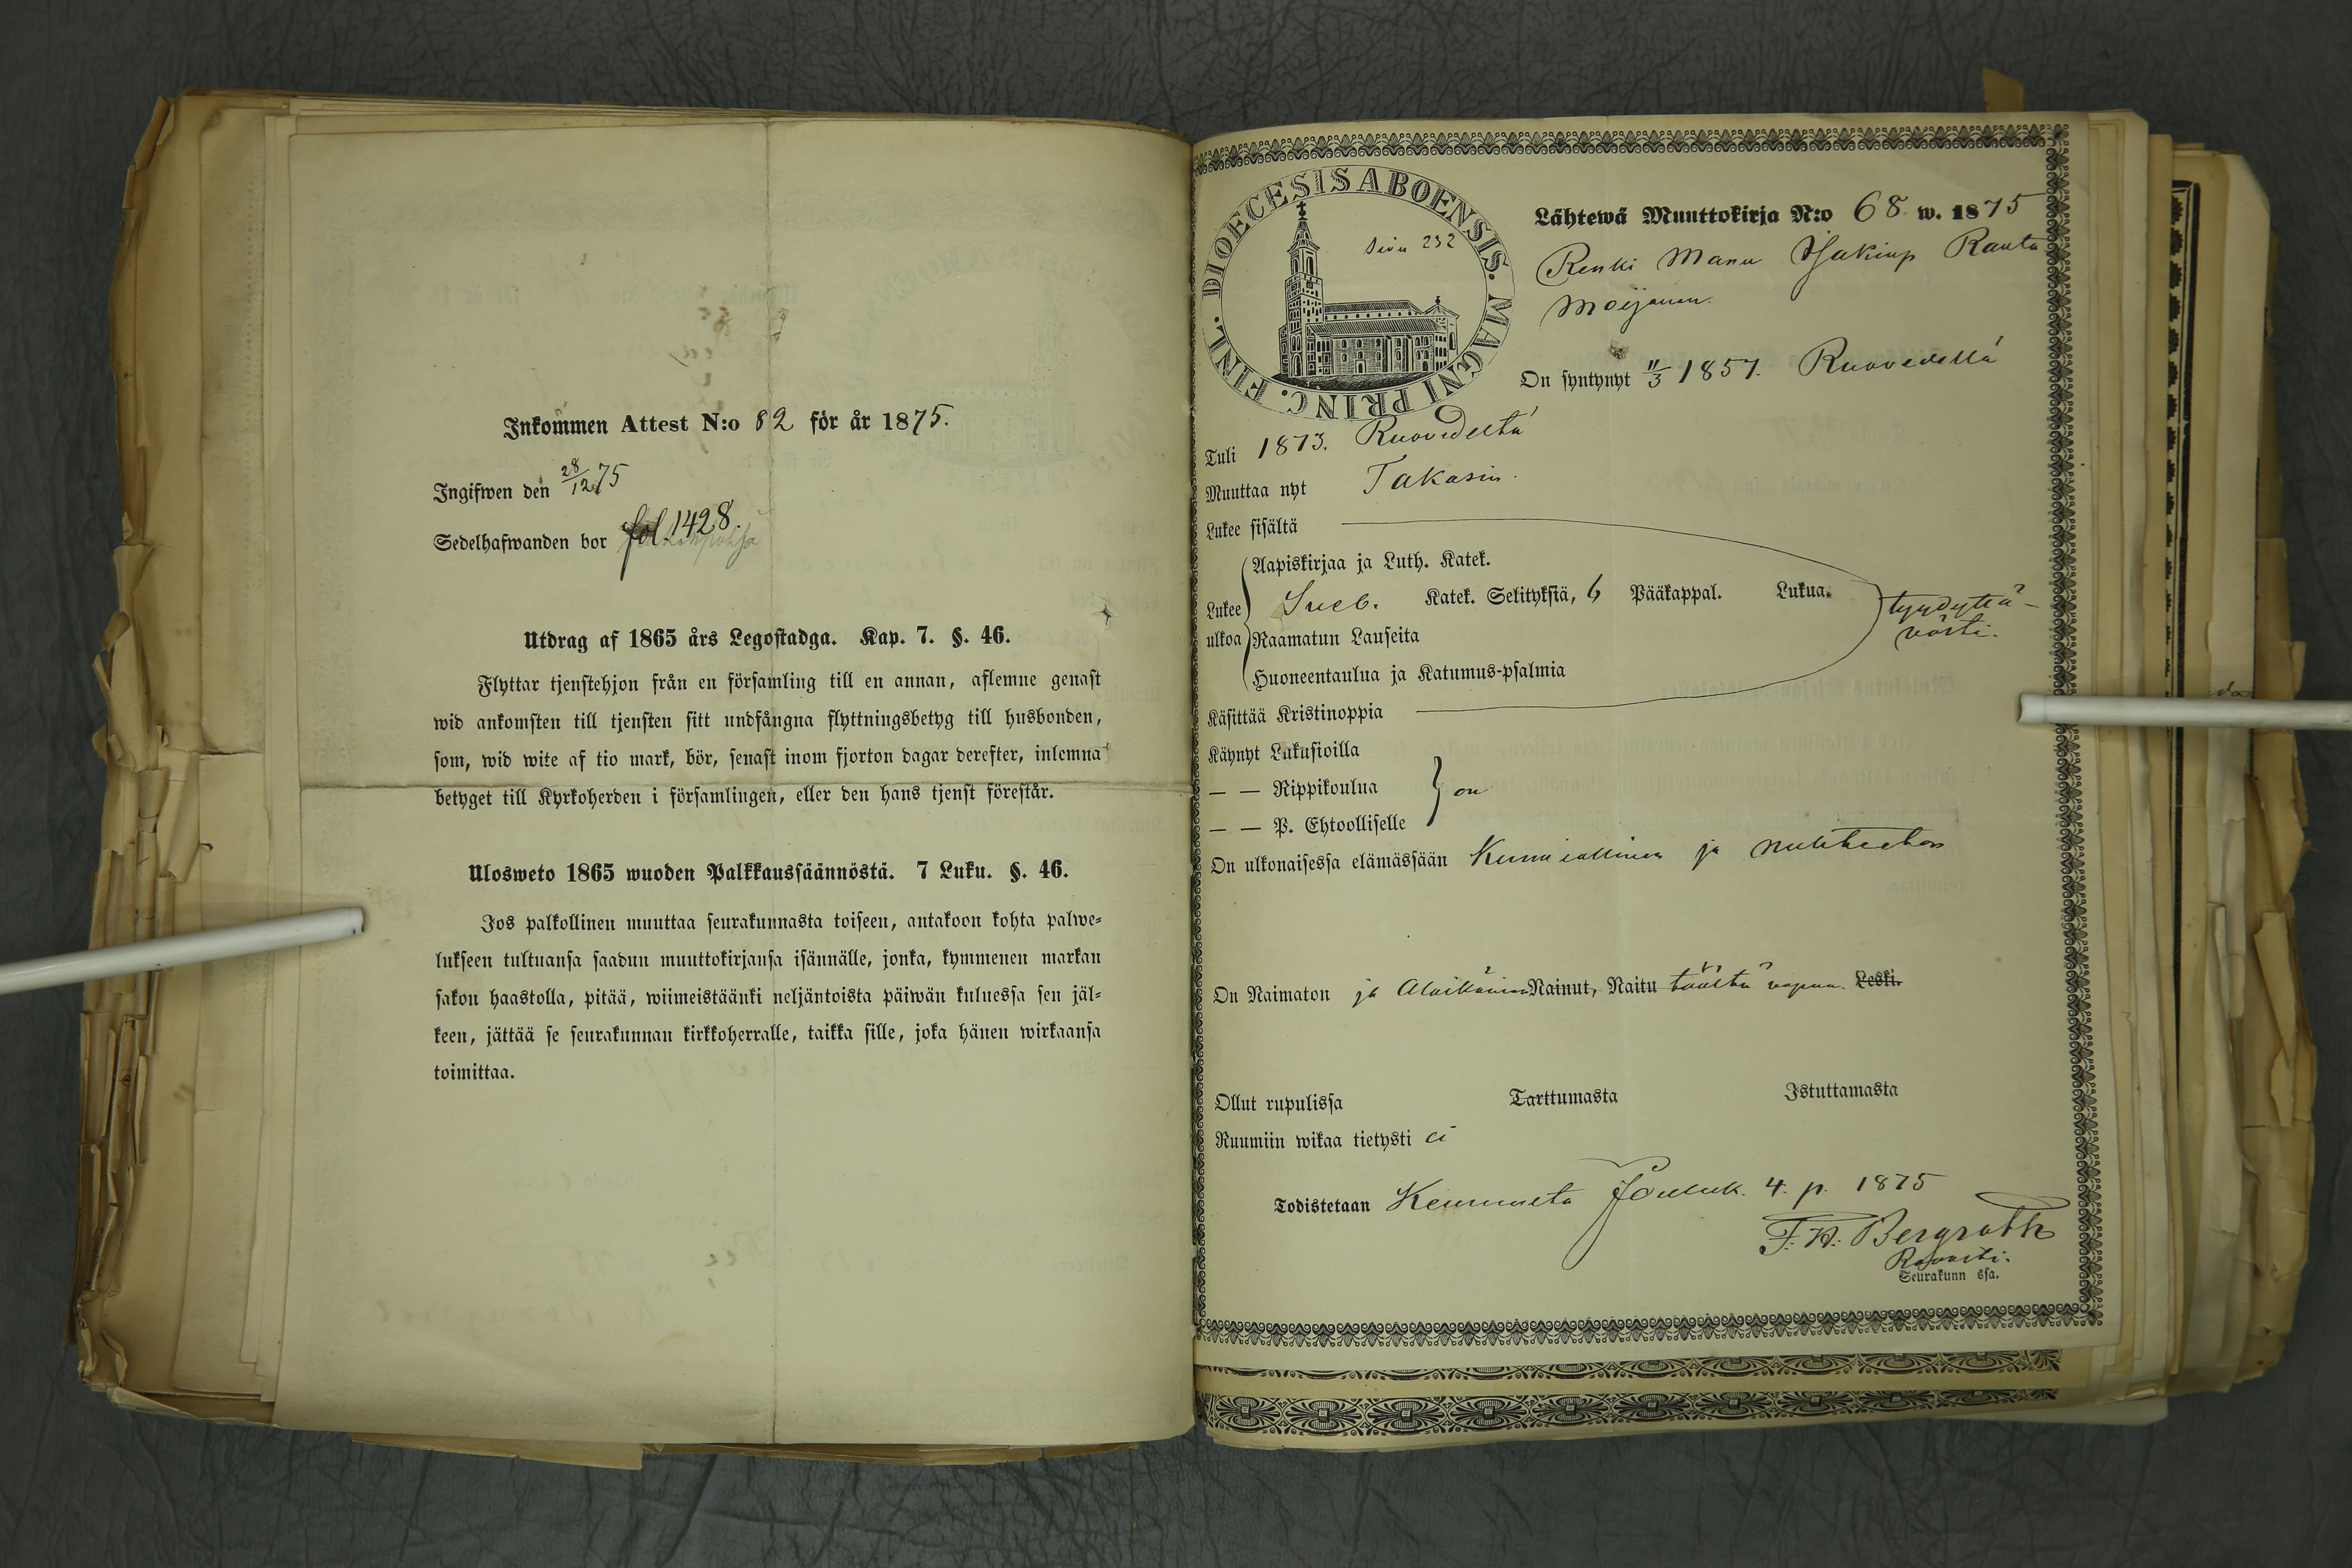 Inkommen Attest N:o 82 för år 1875.
Ingifwen den 28/12 75
Sedelhafwanden bor fol. 1428.
Utdrag af 1865 års Legostadga. Kap. 7. §. 46.
Flyttar tjenstehjon från en församling till en annan, aflemne genast
wid ankomsten till tjensten sitt undfångna flyttningsbetyg till husbonden,
som, wid wite af tio mark, bör, senast inom fjorton dagar derefter, inlemna
betyget till Kyrkoherden i församlingen, eller den hans tjenst förestår.
Ulosweto 1865 wuoden Palkkaussäännöstä. 7 Luku. §. 46.
Jos palkollinen muuttaa seurakunnasta toiseen, antakoon kohta palwe-
lukseen tultuansa saadun muuttokirjansa isännälle, jonka, kymmenen markan
sakon haastolla, pitää, wiimeistäänki neljäntoista päiwän kuluessa sen jäl-
keen, jättää se seurakunnan kirkkoherralle, taikka sille, joka hänen wirkaansa
toimittaa.
DIOECESIS ABOENSIS. MAGNI PRINC. FINL.
Sivu 232
Lähtewä Muuttokirja N:o 68 w. 1875
Renki Manu Isakinp Ranta
Moijanen.
On syntynyt 11/3 1857. Ruovedellä
Tuli 1873. Ruovedeltä
Muuttaa nyt Takasin.
Lukee sisältä
Aapiskirjaa ja Luth. Katek.
Lukee ulkoa Sveb. Katek. Selityksiä, 6 Pääkappal. Lukua. tyydyttä-
västi.
Raamatun Lauseita
Huoneentaulua ja Katumus-psalmia
Käsittää Kristinoppia
Käynyt Lukusioilla
— — Rippikoulua } on
— — P. Ehtoolliselle
On ulkonaisessa elämässään Kunniallinen ja nuhteeton
On Naimaton ja Alaikäinen Nainut, Naitu täältä vapaa. Leski.
Ollut rupulissa Tarttumasta Istuttamasta
Ruumiin wikaa tietysti ei
Todistetaan Keuruulta Jouluk. 4. p. 1875
Bergroth
Rovasti.
Seurakunn ssa.